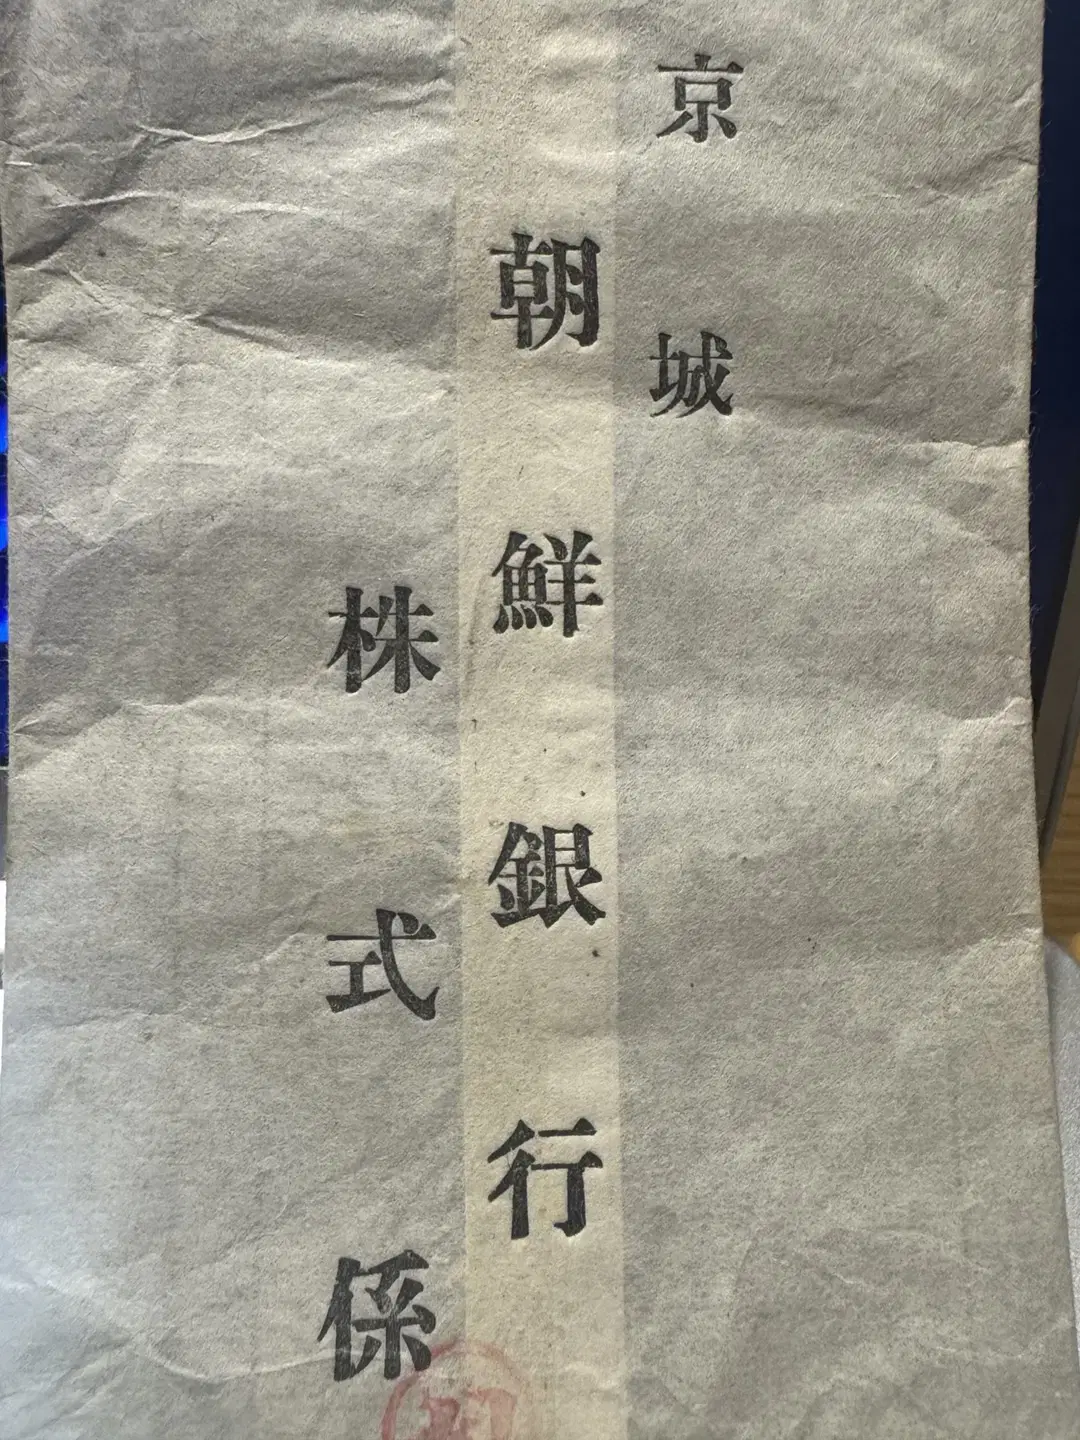 京城
朝鮮銀行
株式係